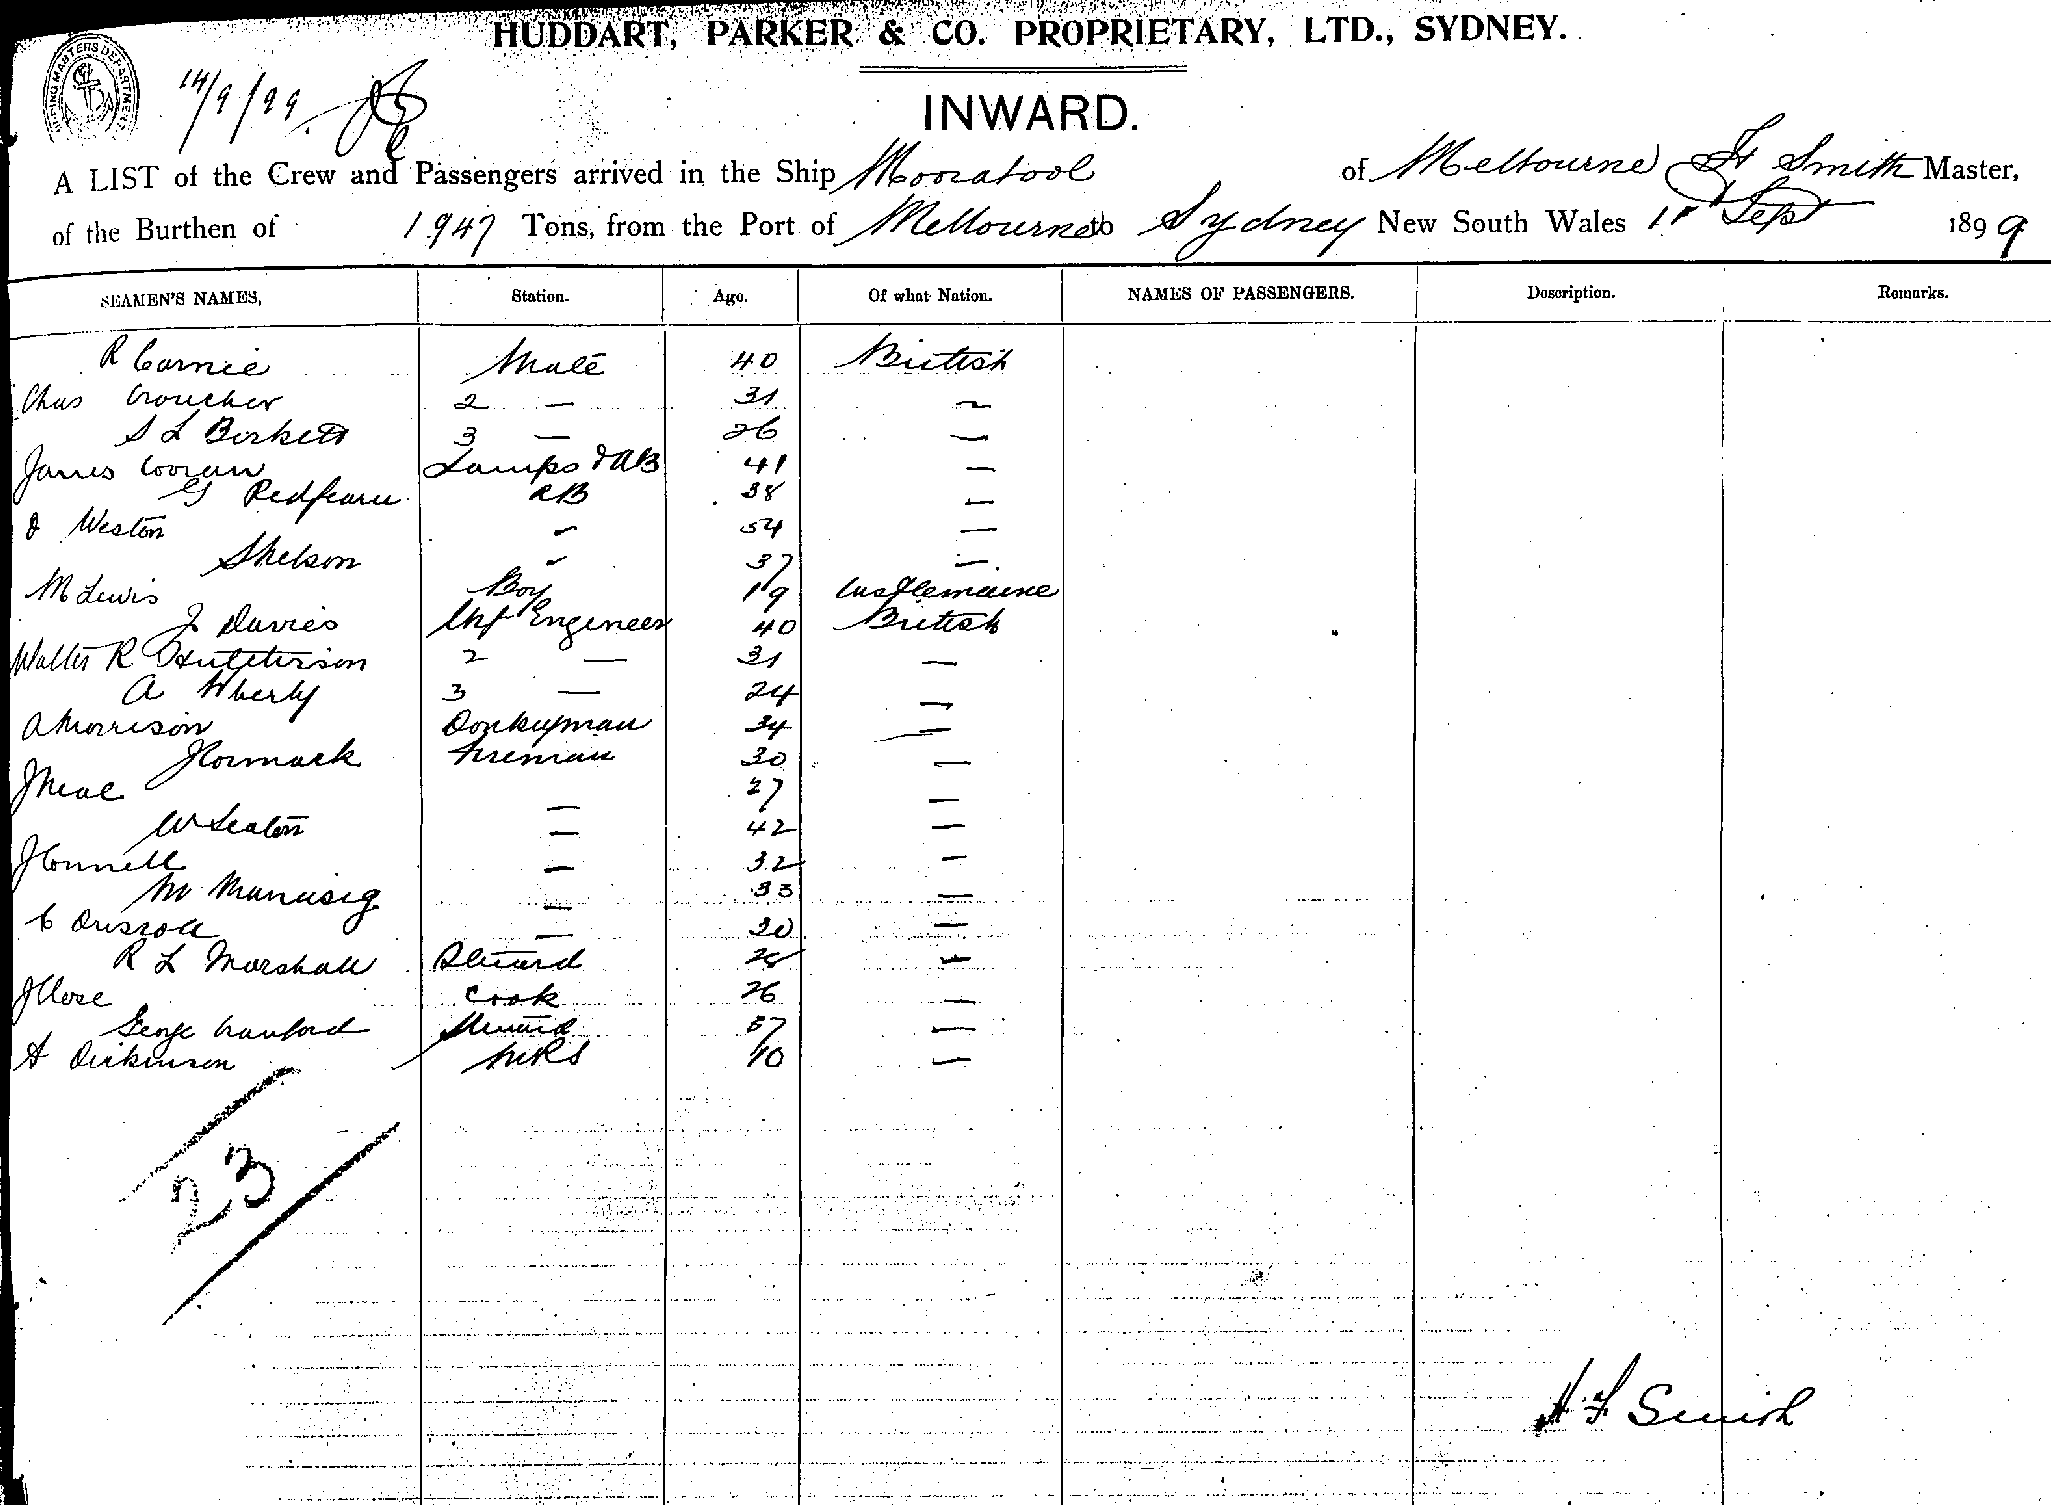 HUDDART, PARKER & CO. PROPRIETARY, LTD., SYDNEY.
14/9/99.
INWARD.
A LIST of the Crew and Passengers arrived in the Ship Mooratool of Melbourne F Smith Master,
of the Burthen of 1947 Tons, from the Port of Melbourne to Sydney New South Wales 11 Sept 1899
SEAMEN'S NAMES, Station. Age. Of what Nation. NAMES OF PASSENGERS. Description. Remarks.
R Carnie Mate 40 British
Chas Croucher 2 — 31 —
S L Birkett 3 — 26 —
James Cowan Lamps & AB 41 —
G Redfearn AB 38 —
J Weston " 54 —
Skelson " 37 —
M Lewis Boy 19 Castlemaine
J Davies Chf Engineer 40 British
Walter R Hutcherson 2 — 31 —
A 3 — 24 —
A Morrison Donkeyman 34 —
J Cormack Fireman 30 —
J Neal — 27 —
W Seaton — 42 —
J Connell — 32 —
M — 33 —
C Driscoll — 30 —
R L Marshall Steward 28 —
J Close Cook 26 —
George Crawford Steward 57 —
A Dickinson 40 —
23
H F Smith